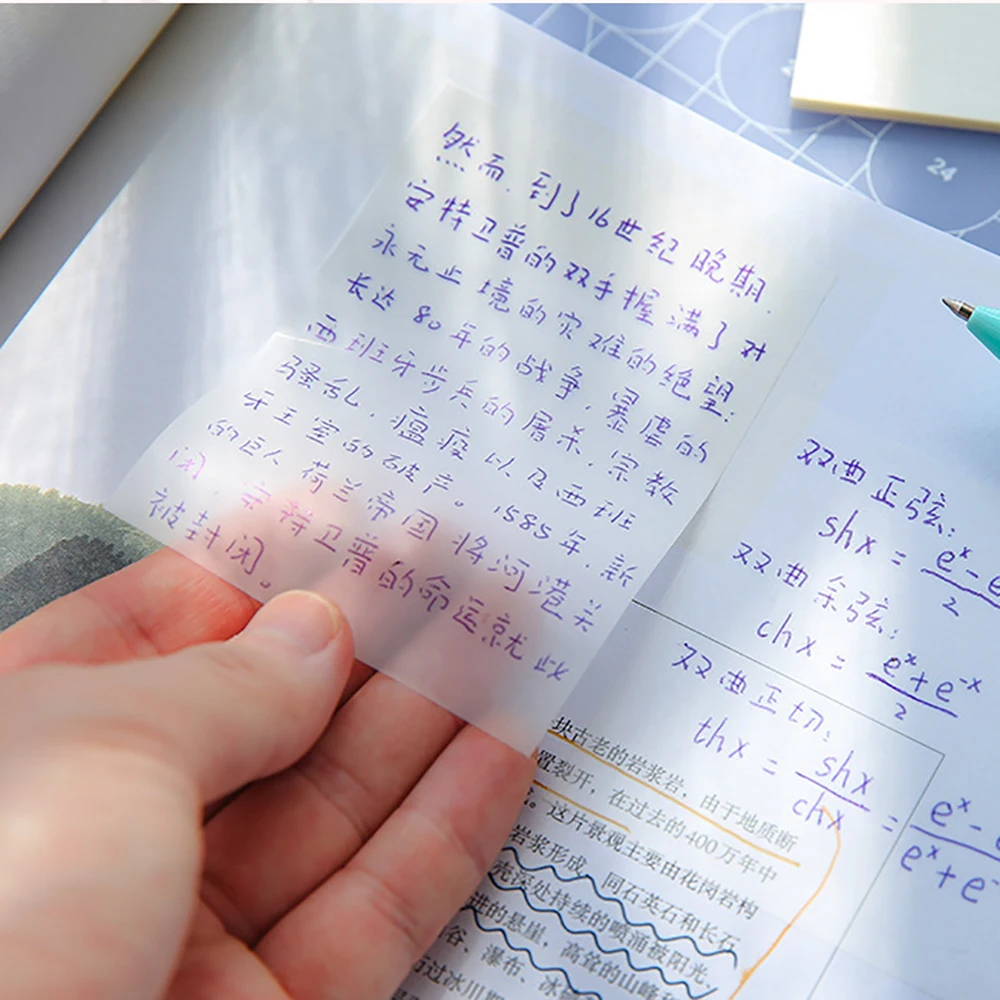 然而,到了16世纪晚期
安特卫普的双手握满了对
永无止境的灾难的绝望:
长达80年的战争,暴虐的
西班牙步兵的屠杀,宗教
骚乱,瘟疫以及西班
牙王室的破产。1585年,新
的巨人荷兰帝国将河港关
闭,安特卫普的命运就此
被封闭。
24
双曲正弦:
shx = e^x - e / 2
双曲余弦:
chx = e^x + e^-x / 2
双曲正切:
thx = shx / chx = e^x - e / e^x + e^-
块古老的岩浆岩,由于地质断
置裂开,在过去的400万年中
。这片景观主要由花岗岩构
岩浆形成,同石英石和长石
壳深处持续的喷涌被阳光、
进的悬崖,高耸的山峰
谷、瀑布、冰
过冰川